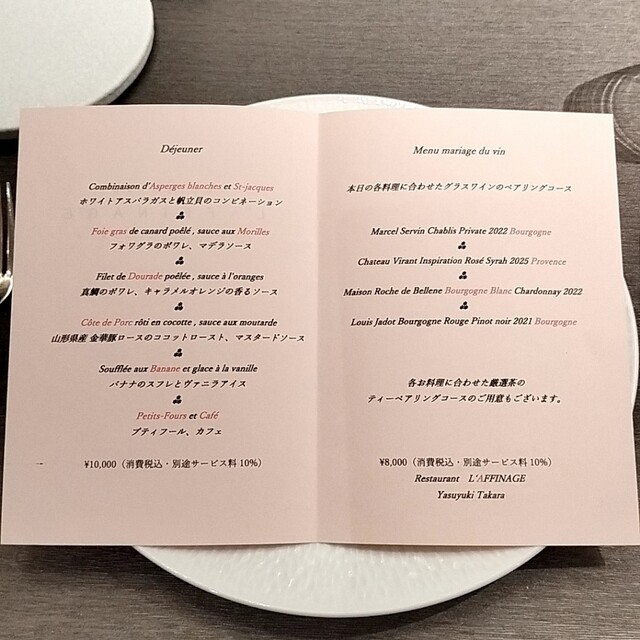 Déjeuner
Combinaison d'Asperges blanches et St-jacques
ホワイトアスパラガスと帆立貝のコンビネーション
Foie gras de canard poêlé , sauce aux Morilles
フォワグラのポワレ、マデラソース
Filet de Dourade poêlée , sauce à l'oranges
真鯛のポワレ、キャラメルオレンジの香るソース
Côte de Porc rôti en cocotte , sauce aux moutarde
山形県産 金華豚ロースのココットロースト、マスタードソース
Soufflée aux Banane et glace à la vanille
バナナのスフレとヴァニラアイス
Petits-Fours et Café
プティフール、カフェ
¥10,000（消費税込・別途サービス料 10%）
Menu mariage du vin
本日の各料理に合わせたグラスワインのペアリングコース
Marcel Servin Chablis Private 2022 Bourgogne
Chateau Virant Inspiration Rosé Syrah 2025 Provence
Maison Roche de Bellene Bourgogne Blanc Chardonnay 2022
Louis Jadot Bourgogne Rouge Pinot noir 2021 Bourgogne
各お料理に合わせた厳選茶の
ティーペアリングコースのご用意もございます。
¥8,000（消費税込・別途サービス料 10%）
Restaurant L'AFFINAGE
Yasuyuki Takara